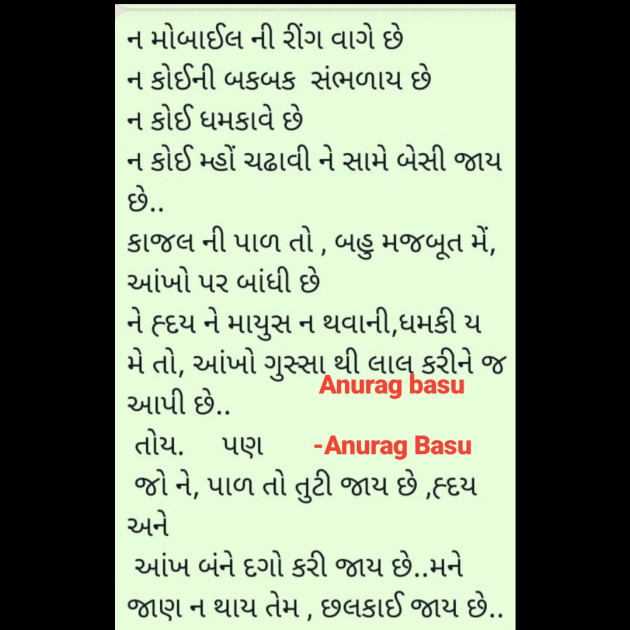 ન મોબાઈલ ની રીંગ વાગે છે
ન કોઈની બકબક સંભળાય છે
ન કોઈ ધમકાવે છે
ન કોઈ મ્હોં ચઢાવી ને સામે બેસી જાય
છે..
કાજલ ની પાળ તો , બહુ મજબૂત મેં,
આંખો પર બાંધી છે
ને હ્દય ને માયુસ ન થવાની,ધમકી ય
મે તો, આંખો ગુસ્સા થી લાલ કરીને જ
Anurag basu
આપી છે..
તોય. પણ -Anurag Basu
જો ને, પાળ તો તુટી જાય છે ,હ્દય
અને
આંખ બંને દગો કરી જાય છે..મને
જાણ ન થાય તેમ , છલકાઈ જાય છે..